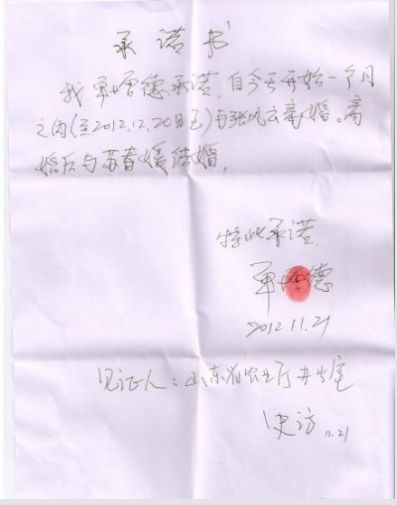 承诺书
我单增德承诺，自今天开始一个月
之内（至2012.12.20日止）与张风云离婚。离
婚后与苏春媛结婚，
特此承诺.
单增德
2012.11.21
见证人：山东省农业厅办公室
史访 11.21